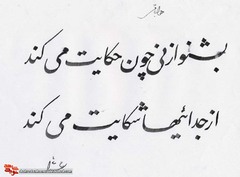 بشنو از نی چون حکایت می کند
از جدائیها شکایت می کند